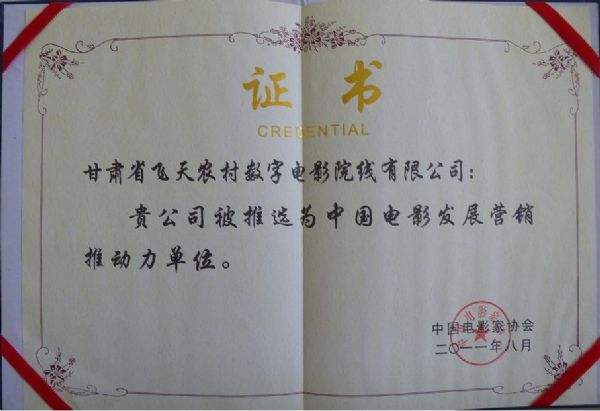 证书
CREDENTIAL
甘肃省飞天农村数字电影院线有限公司：
贵公司被推选为中国电影发展营销
推动力单位。
中国电影家协会
二〇一一年八月